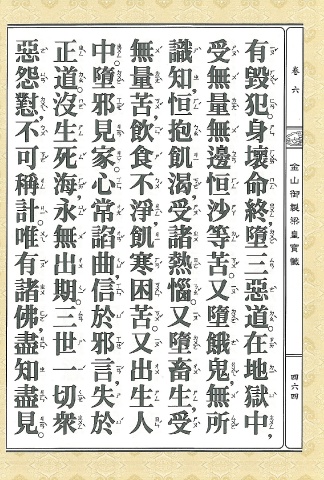 卷六
金山御製梁皇寶懺
四六四
有毀犯。身壞命終,墮三惡道。在地獄中,
受無量無邊恒沙等苦。又墮餓鬼,無所
識知,恒抱飢渴,受諸熱惱。又墮畜生,受
無量苦,飲食不淨,飢寒困苦。又出生人
中,墮邪見家,心常諂曲,信於邪言,失於
正道。沒生死海,永無出期。三世一切衆
惡怨懟,不可稱計。唯有諸佛,盡知盡見。